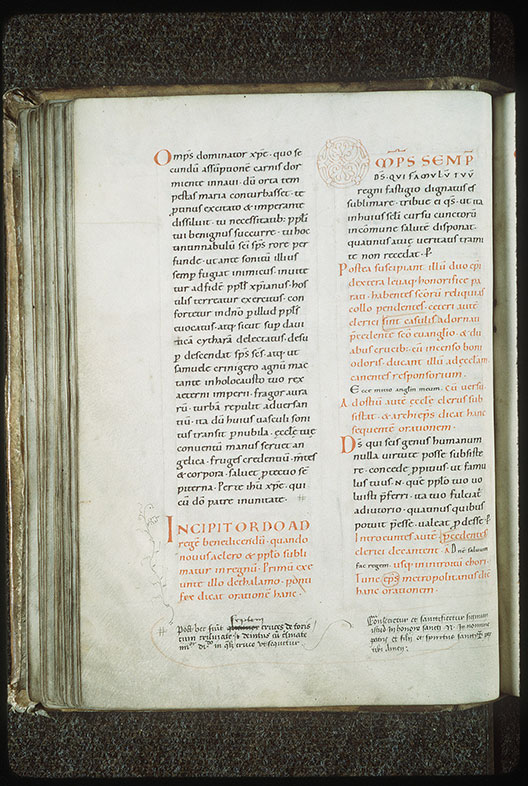 Omp̅s dominator xp̅e · quo se
cundu̅ assu̅ptione̅ carnis dor
miente in naui · du̅ orta tem
pestas maria conturbasset · te
p̱tinus excitato & imperante
dissiluit · tu necessitatib; pp̅li
tui benignus succurre · tu hoc
tintinnabulu̅ sc̅i sp̅s rore per
funde · ut ante sonitu̅ illius
semp̱ fugiat inimicus · inuite
tur ad fide̅ pp̅ls xp̅ianus · hos
tilis terreatur exercitus · con
fortetur in dn̅o p̱ illud pp̅ls
euocatus · atq; sicut sup̱ daui
tica̅ cythara̅ delectatus · desu
p̱ descendat sp̅s sc̅s · atq; ut
samuele crinigero agnu̅ mac
tante in holocausto tuo rex
aeterni imperii · fragor aura
ru̅ · turba̅ repulit aduersan
tiu̅ · ita du̅ huius uasculi soni
tus transit p̱ nubila · eccl̅e tue̜
conuentu̅ manus seruet an
gelica · fruges credentiu̅ · m̅tes
& corpora · saluet p̱tectio se̅
piterna · Per te ih̅u xp̅e · qui
cu̅ do̅ patre in unitate ·
INCIPIT ORDO AD
rege̅ benedicendu̅ · quando
nouus a clero & pp̅lo subli
matur in regnu̅ · Primu̅ exe
unte illo de thalamo · ponti
fex dicat oratione̅ hanc ·
septem
Post hec fiu̅t cruces de foris
cum
OMPS SEMP̱
DS · QUI FAMULU̅ TUU̅
regni fastigio dignatus es
sublimare · tribue ei qs̅ · ut ita
in huius sc̅li cursu cunctoru̅
in co̅mune salute̅ disponat ·
quatinus a tue̜ ueritatis trami
te non recedat · P̱
Postea suscipiant illu̅ duo ep̅i
dextera leuaq; honorifice pa
rati · habentes sc̅oru̅ reliquias
collo pendentes · ceteri aute̅
clerici sint casulis adornati
p̱cedente sc̅o euanglio · & du
abus crucib; · cu̅ incenso boni
odoris · ducant illu̅ ad eccl̅am ·
canentes responsorium ·
Ecce mitto angl̅m meum · Cu̅ uersu
Ad ostiu̅ aute̅ eccl̅e̜ clerus sub
sistat · & archiep̅s dicat hanc
sequente̅ orationem ·
Ds̅ qui scis genus humanum
nulla uirtute posse subsiste
re · concede p̱pitius · ut famu
lus tuus · N · que̅ pp̅lo tuo uo
luisti p̱ferri · ita tuo fulciat̅
adiutorio · quatinus quibus
potuit p̱esse · ualeat p̱desse · P̱
Introeuntes aute̅ p̱cedentes
clerici decantent · A · Dn̅e saluum
fac regem · usq; in introitu̅ chori ·
Tunc ep̅s metropolitanus dic
hanc orationem ·
Consecretur et sanctificetur signum
istud in honore sancti · N · In nomine
patris et filii et spiritus sancti